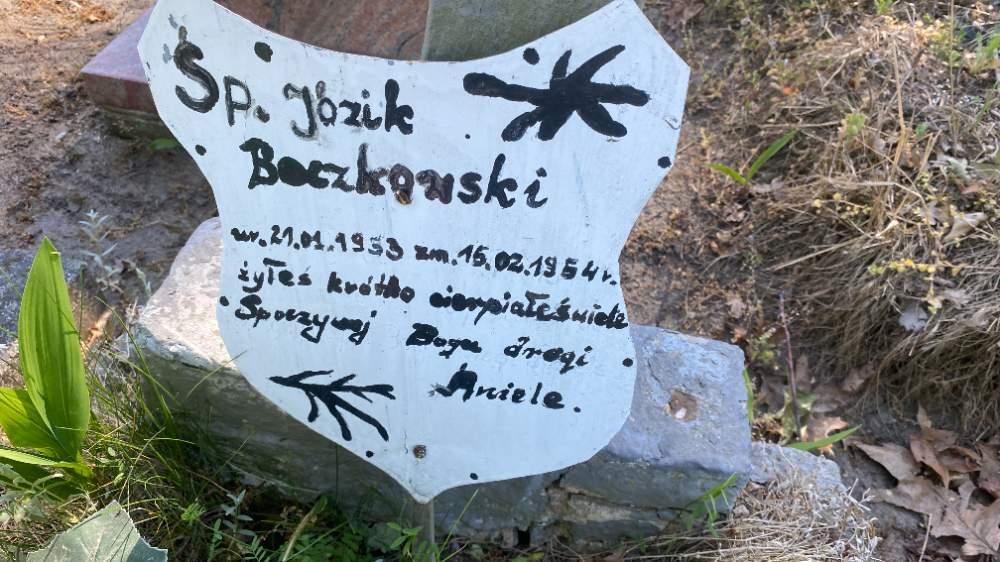 Śp. Józik
Boczkowski
ur. 21.01.1953 zm. 15.02.1954 r.
żyłeś krótko cierpiałeś wiele
Spoczywaj Bogu drogi
Aniele.